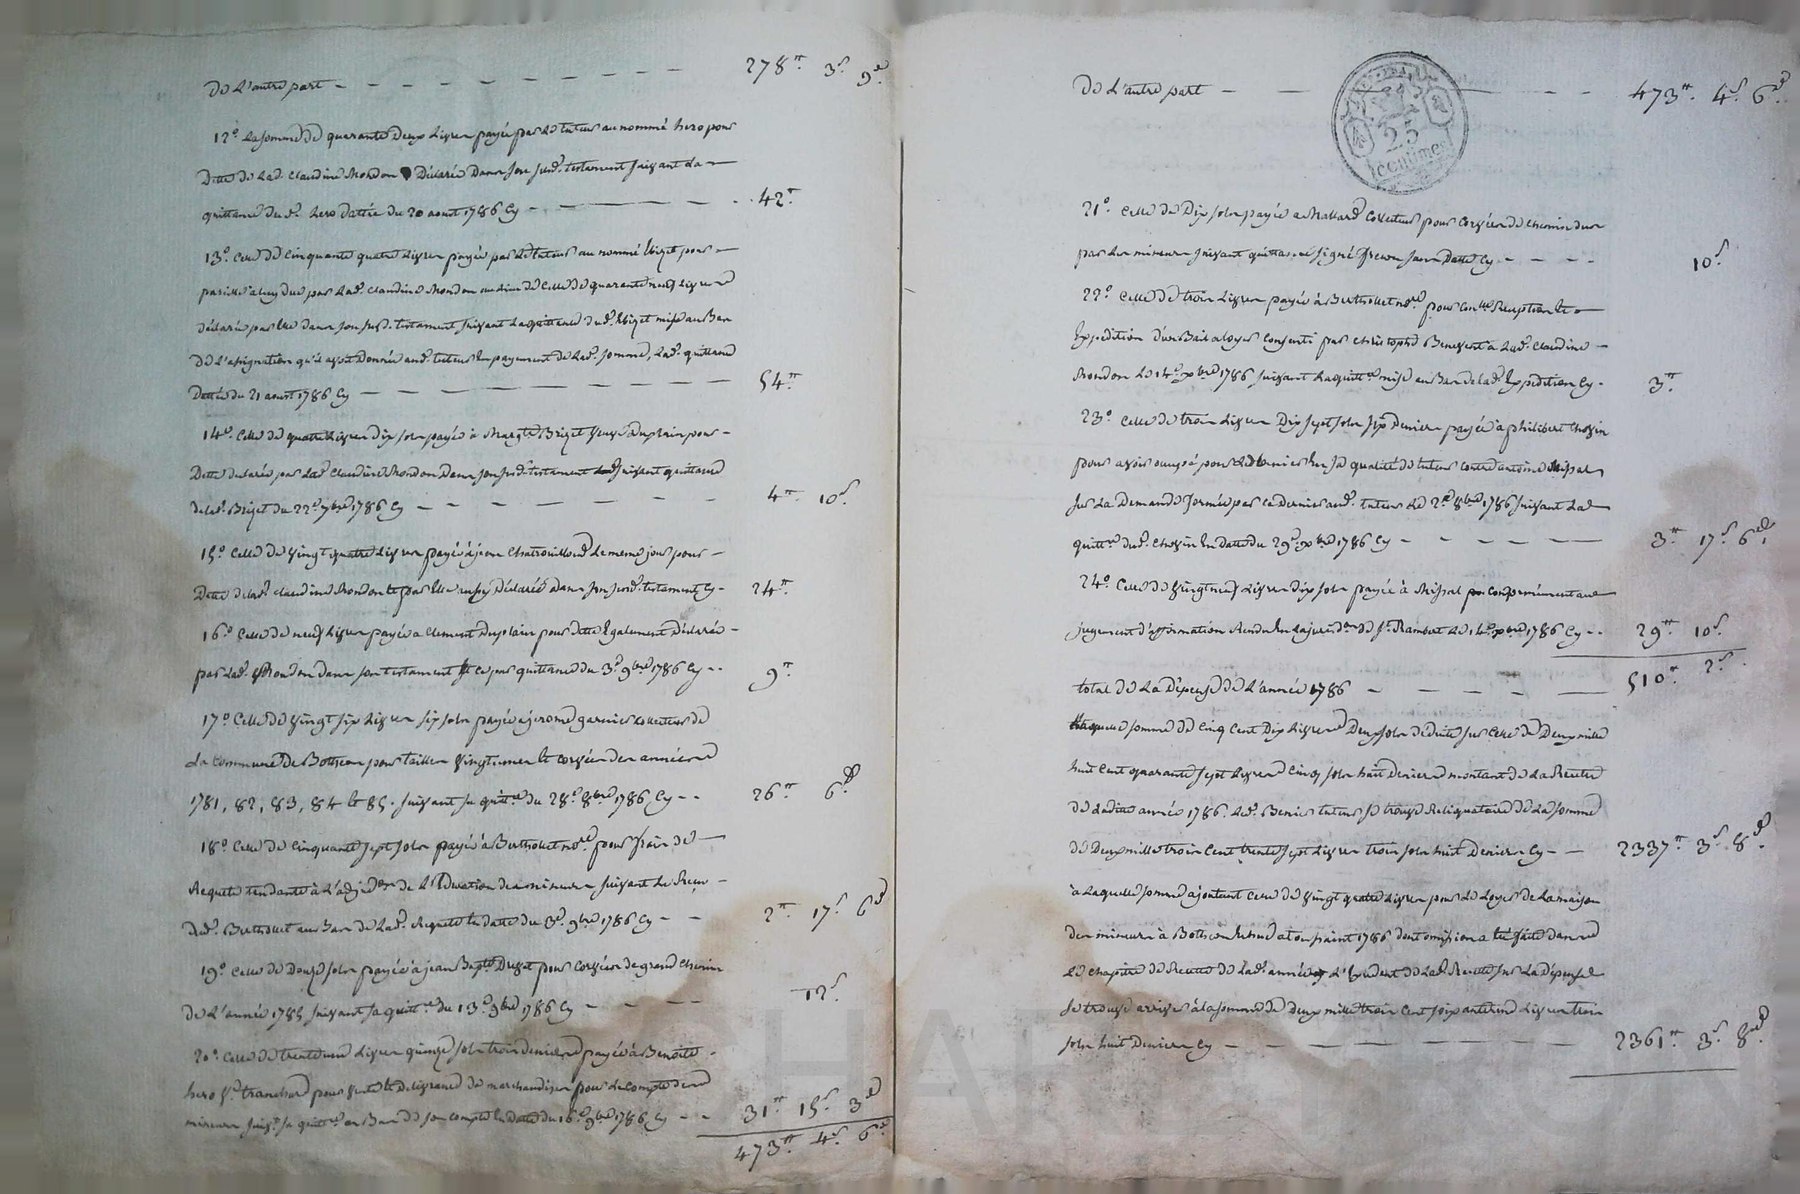 de L'autre part - - - - - - - - 278tt. 3s. 9d.
12o. La somme de quarante deux Livres payée par Le tuteur au nommé hero pour
Dette de Lad. Claudine Rondon Déclarée Dans son susd. testament suivant La
quittance dud. hero dattée du 20 aoust 1786 Cy - - - 42tt
13o. Celle de Cinquante quatre Livres payée par Le tuteur au nommé Bizet pour
pareille a luy due par Lad. Claudine Rondon au lieu de Celle de quarante neuf Livres
déclarée par Elle dans son susd. testament suivant La quittance dud. Bizet mise au Bas
de L'assignation qu'il avoit Donnée aud. tuteur En payement de Lad. somme, Lad. quittance
Dattée du 21 aoust 1786 Cy - - - - - - - - 54tt.
14o. Celle de quatre Livres dix sols payée à Margte. Brizet veuve Duplain pour
Dette declarée par Lad. Claudine Rondon Dans son susd. testament suivant quittance
de lad. Brizet du 22e. 7bre 1786 Cy - - - - - - - 4tt. 10s.
15o. Celle de vingt quatre Livres payée à jean Chatrouilloud Le meme jour pour
Dette de lad. Claudine Rondon et par Elle aussy Déclarée Dans son susd. testament Cy - 24tt.
16o. Celle de neuf Livres payée a Clement Duplain pour dette Egalement Déclarée
par Lad. Rondon dans son testament et ce par quittance du 3e. 9bre 1786 Cy - - 9tt.
17o. Celle de vingt six Livres six sols payée à jerome garnier collecteur de
La Commune De Bothéon pour tailles vingtiemes et Corvées des années
1781, 82, 83, 84 et 85. suivant sa quitt.ce du 28e. 8bre 1786 Cy - - 26tt 6s.
18o. Celle de Cinquante sept sols payée à Berthollet nore. pour frais de
Requete tendante à L'adjudon. de L'Education des mineurs suivant Le Recu
dud. Berthollet au Bas de Lad. Requete En datte du 3e. 9bre 1786 Cy - - 2tt. 17s. 6d
19o. Celle de Douze sols payée à jean Bapte. Duzot pour Corvées de grand Chemin
de L'année 1785 suivant sa quitt.ce du 13e. 9bre 1786 Cy - - - - 12s.
20o. Celle de trente une Livres quinze sols trois deniers payée à Benoite
hero ve. tranchard pour vente et Delivrance de marchandises pour Le Compte des
mineurs suivt. sa quitt.ce au Bas de son compte En datte du 16e. 9bre 1786 Cy - - 31tt 15s. 3d
473tt. 4s. 6d.
de L'autre part - - - - - - 473tt. 4s. 6d.
25
centimes
21o. Celle de Dix sols payée a Mallard Collecteur pour Corvées de Chemin dues
par Les mineurs suivant quittance signé frecon sans Datte Cy - - - - 10s.
22o. Celle de trois Livres payée à Berthollet nore. pour Conlle. Reception et
Expedition d'un Bail a loyer Consenti par Christophe Benevent a Lad. Claudine
Rondon Le 14e. xbre 1786 suivant La quitt.ce mise au Bas de lad. Expedition Cy - 3tt.
23o. Celle de trois Livres Dix sept sols six Deniers payée à philibert Chovin
pour avoir occupé pour Led. Benier En sa qualité de tuteur Contre antoine Missal
sur La Demande formée par Ce Dernier aud. tuteur Le 2e. 8bre 1786 suivant La
quitt.ce dud. Chovin En datte du 29e. xbre 1786 Cy - - - - - 3tt 17s. 6d.
24o. Celle de vingt neuf Livres dix sols payée à Missal Conformément au
jugement d'affirmation Rendu En La juridon. de St. Rambert Le 14e. xbre 1786 Cy - - 29tt 10s.
total de La Dépense de L'année 1786 - - - - - 510tt. 2s.
Laquelle somme de Cinq Cent Dix Livres Deux sols déduite sur Celle de Deux mille
huit Cent quarante sept Livres Cinq sols huit Deniers montant de La Recette
de Ladite année 1786. Led. Benier tuteur se trouve Reliquataire de La somme
de Deux mille trois Cent trente sept Livres trois sols huit Deniers Cy - - 2337tt. 3s. 8d.
à Laquelle somme ajoutant Celle de vingt quatre Livres pour Le Loyer de La maison
des mineurs à Bothéon Echue a toussaint 1786 dont omission a Eté faite dans
Le chapitre de Recette de Lad. année L'Excedent de Lad. Recette sur La Dépense
se trouve arriver à La somme de Deux mille trois Cent soixante un Livres trois
sols huit Deniers Cy - - - - - - - 2361tt 3s. 8d.